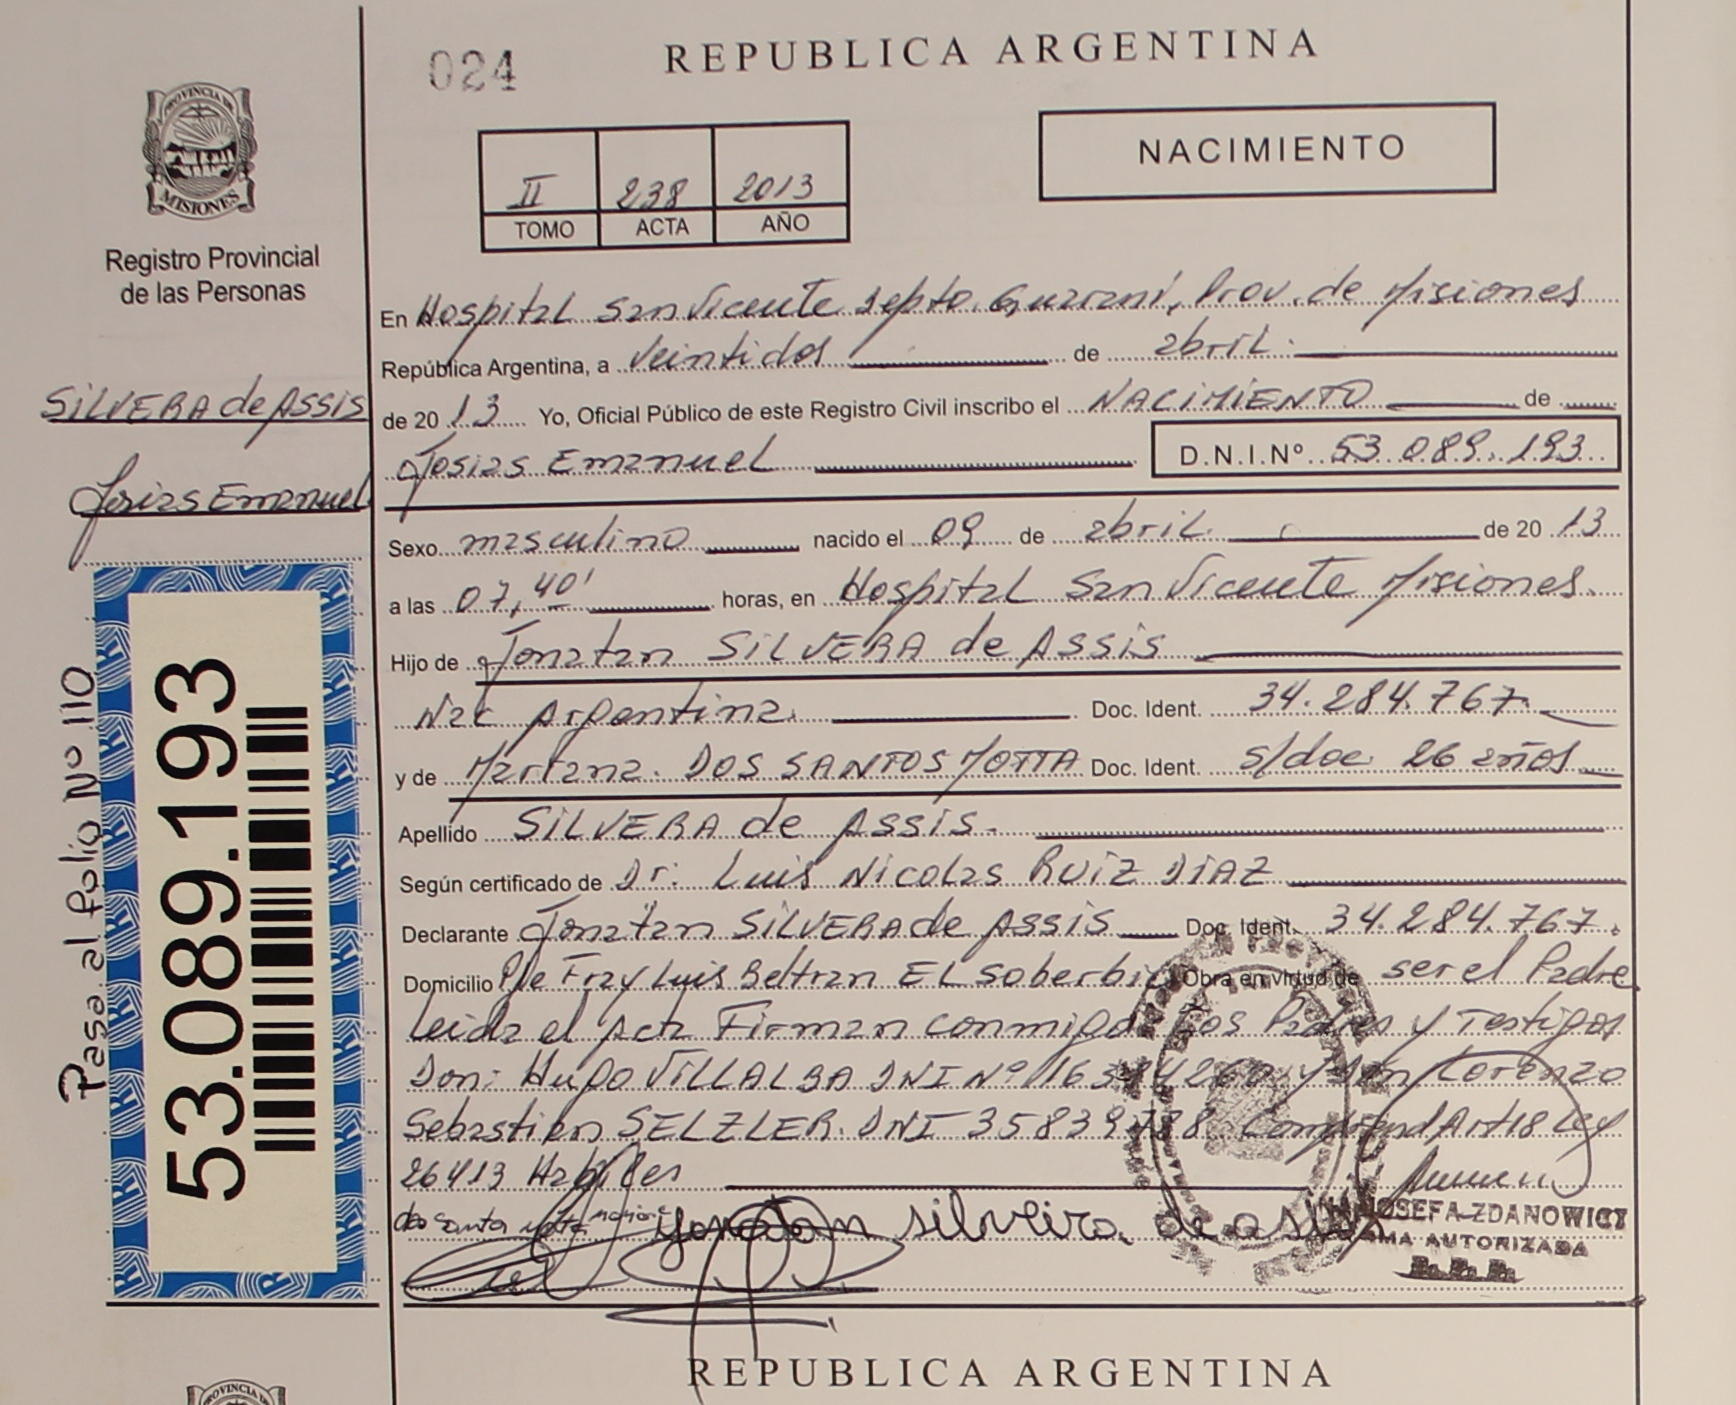 024
REPUBLICA ARGENTINA
PROVINCIA DE
MISIONES
Registro Provincial
de las Personas
II 238 2013
TOMO ACTA AÑO
NACIMIENTO
En Hospital San Vicente Depto. Guaraní, Prov. de Misiones
República Argentina, a veintidos de abril.
de 20 13 Yo, Oficial Público de este Registro Civil inscribo el NACIMIENTO de
Josias Emanuel D.N.I.Nº 53.089.193
SILVERA de ASSIS
Josias Emanuel
Sexo masculino nacido el 09 de abril. de 20 13
a las 07,40' horas, en Hospital San Vicente Misiones.
Hijo de Jonatan SILVERA de ASSIS
Nac Argentina. Doc. Ident. 34.284.767.
y de Mariana. DOS SANTOS MOTTA Doc. Ident. s/doc 26 años
Apellido SILVERA de ASSIS.
Según certificado de Dr: Luis Nicolas RUIZ DIAZ
Declarante Jonatan SILVERA de ASSIS Doc. Ident. 34.284.767.
Domicilio Pje Fray Luis Beltran EL Soberbio Obra en virtud de ser el Padre
Leida el Acta Firman conmigo Los Padres y Testigos
Don: Hugo VILLALBA DNI Nº y Don Lorenzo
Sebastian SELZLER. DNI Art 18 Ley
26413 Habiles
yonatan silveira de asis
JOSEFA ZDANOWICZ
FIRMA AUTORIZADA
53.089.193
Pasa al Folio Nº 110
REPUBLICA ARGENTINA
PROVINCIA DE